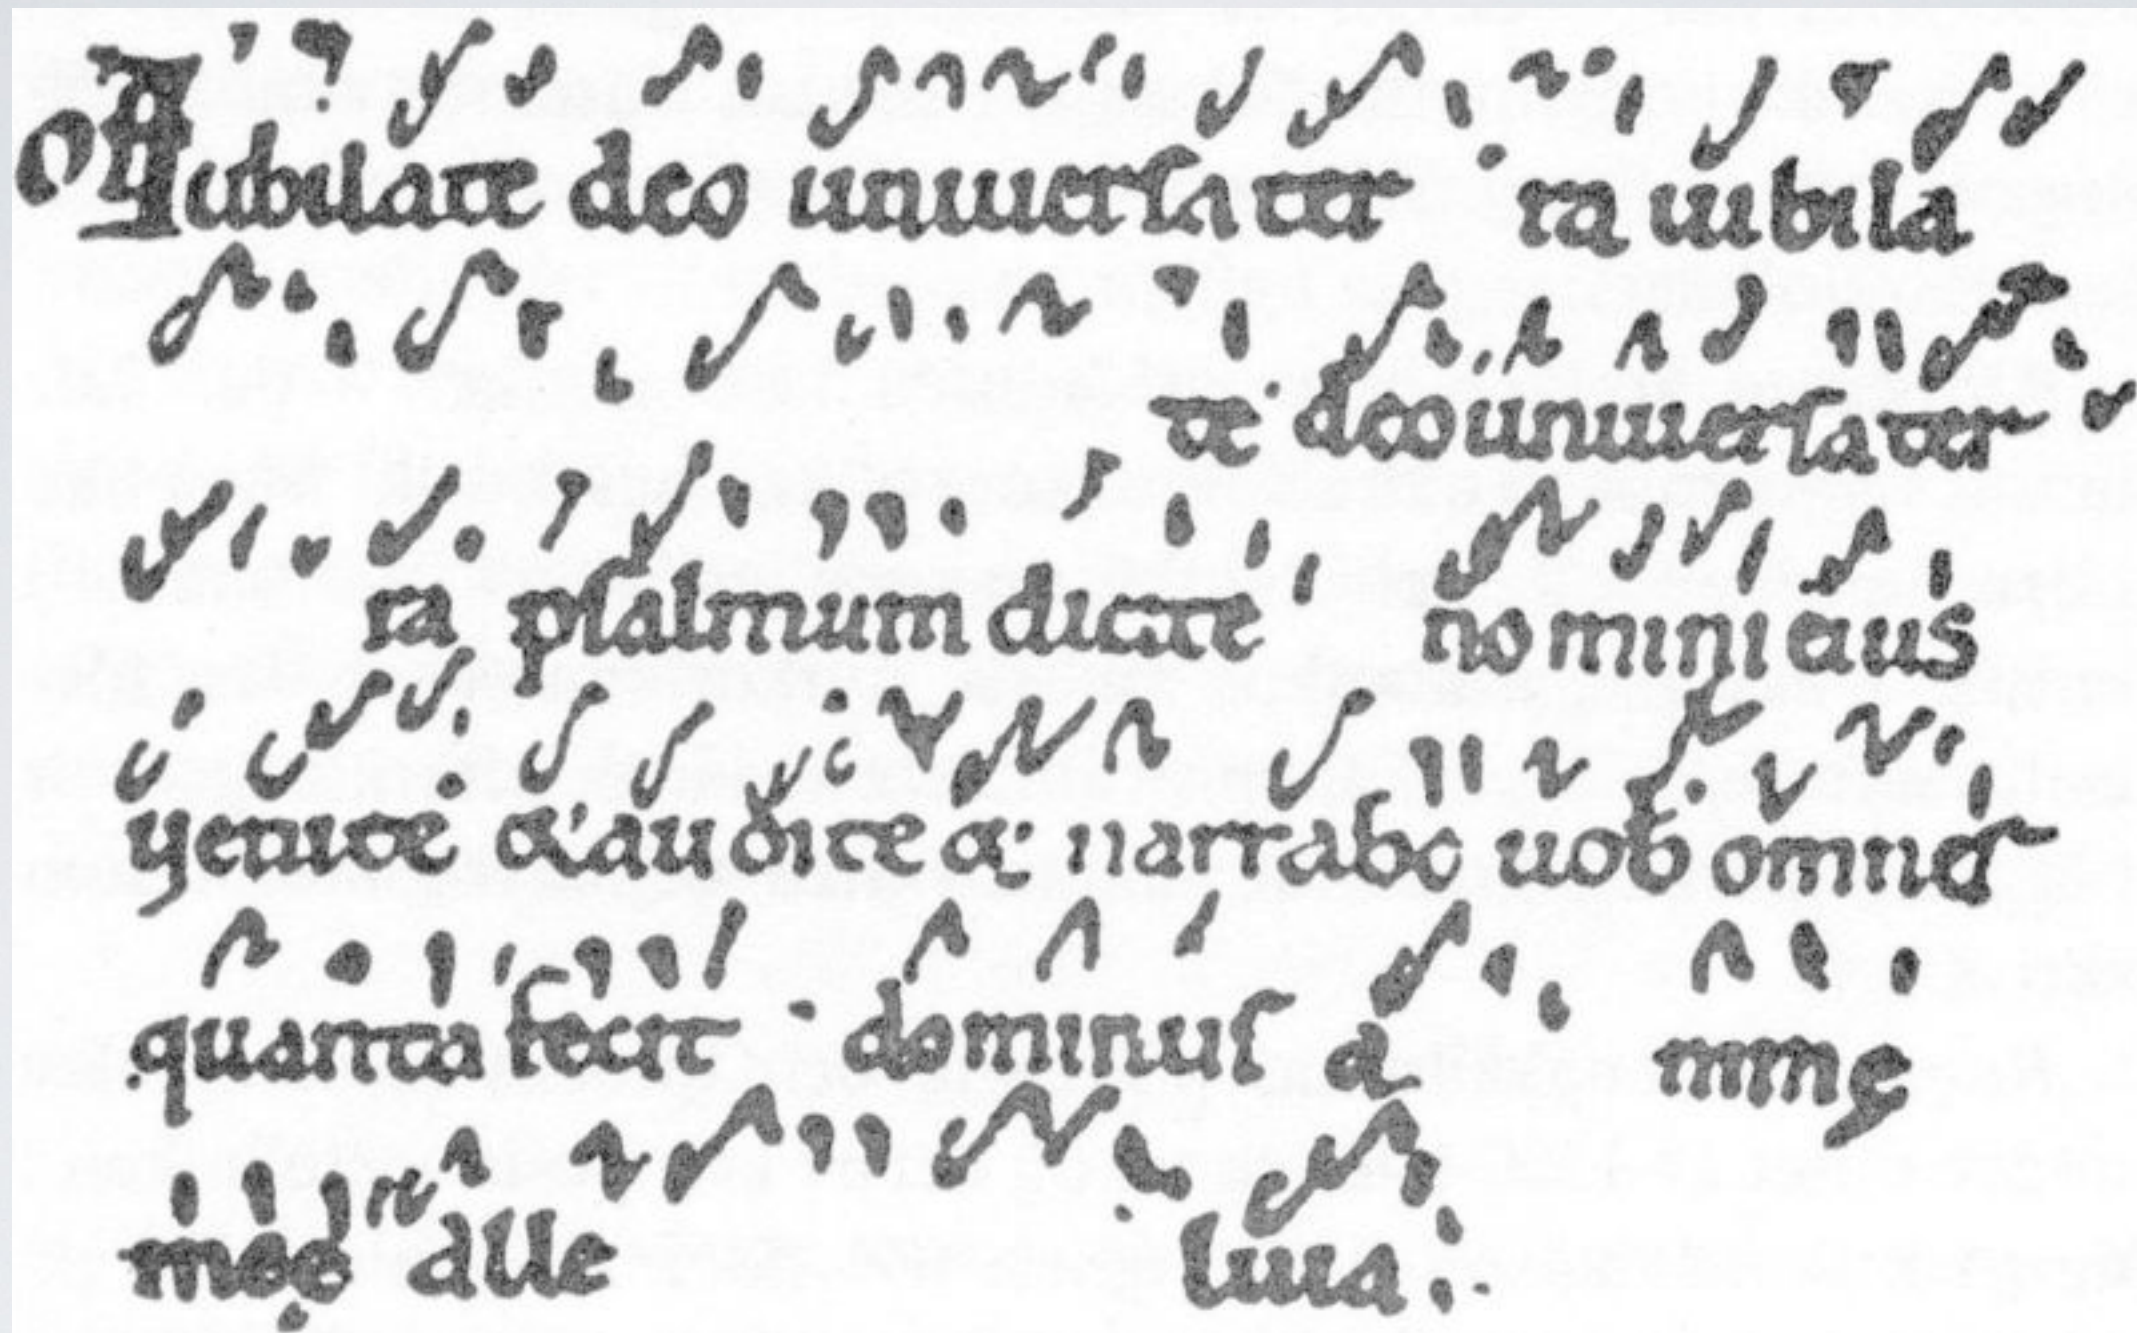 Iubilate deo uniuersa ter ra iubila
te deo uniuersa ter
ra psalmum dicite nomini eius
uenite & audite & narrabo uob omnes
quanta fecit dominus a nime
meę alle luia